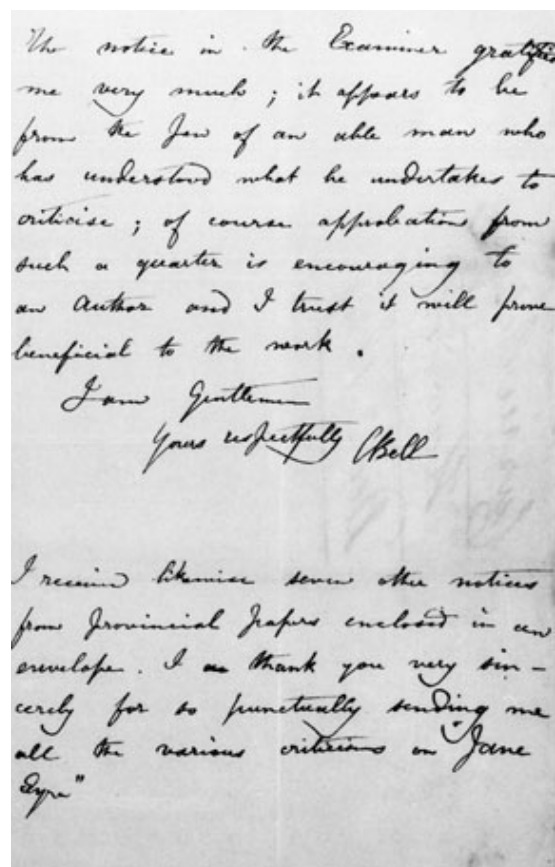 The notice in the Examiner gratified
me very much; it appears to be
from the pen of an able man who
has understood what he undertakes to
criticise; of course approbation from
such a quarter is encouraging to
an author and I trust it will prove
beneficial to the work.
I am Gentlemen
Yours respectfully CBell
I received likewise seven other notices
from provincial papers enclosed in an
envelope. I thank you very sin-
cerely for so punctually sending me
all the various criticisms on "Jane
Eyre"